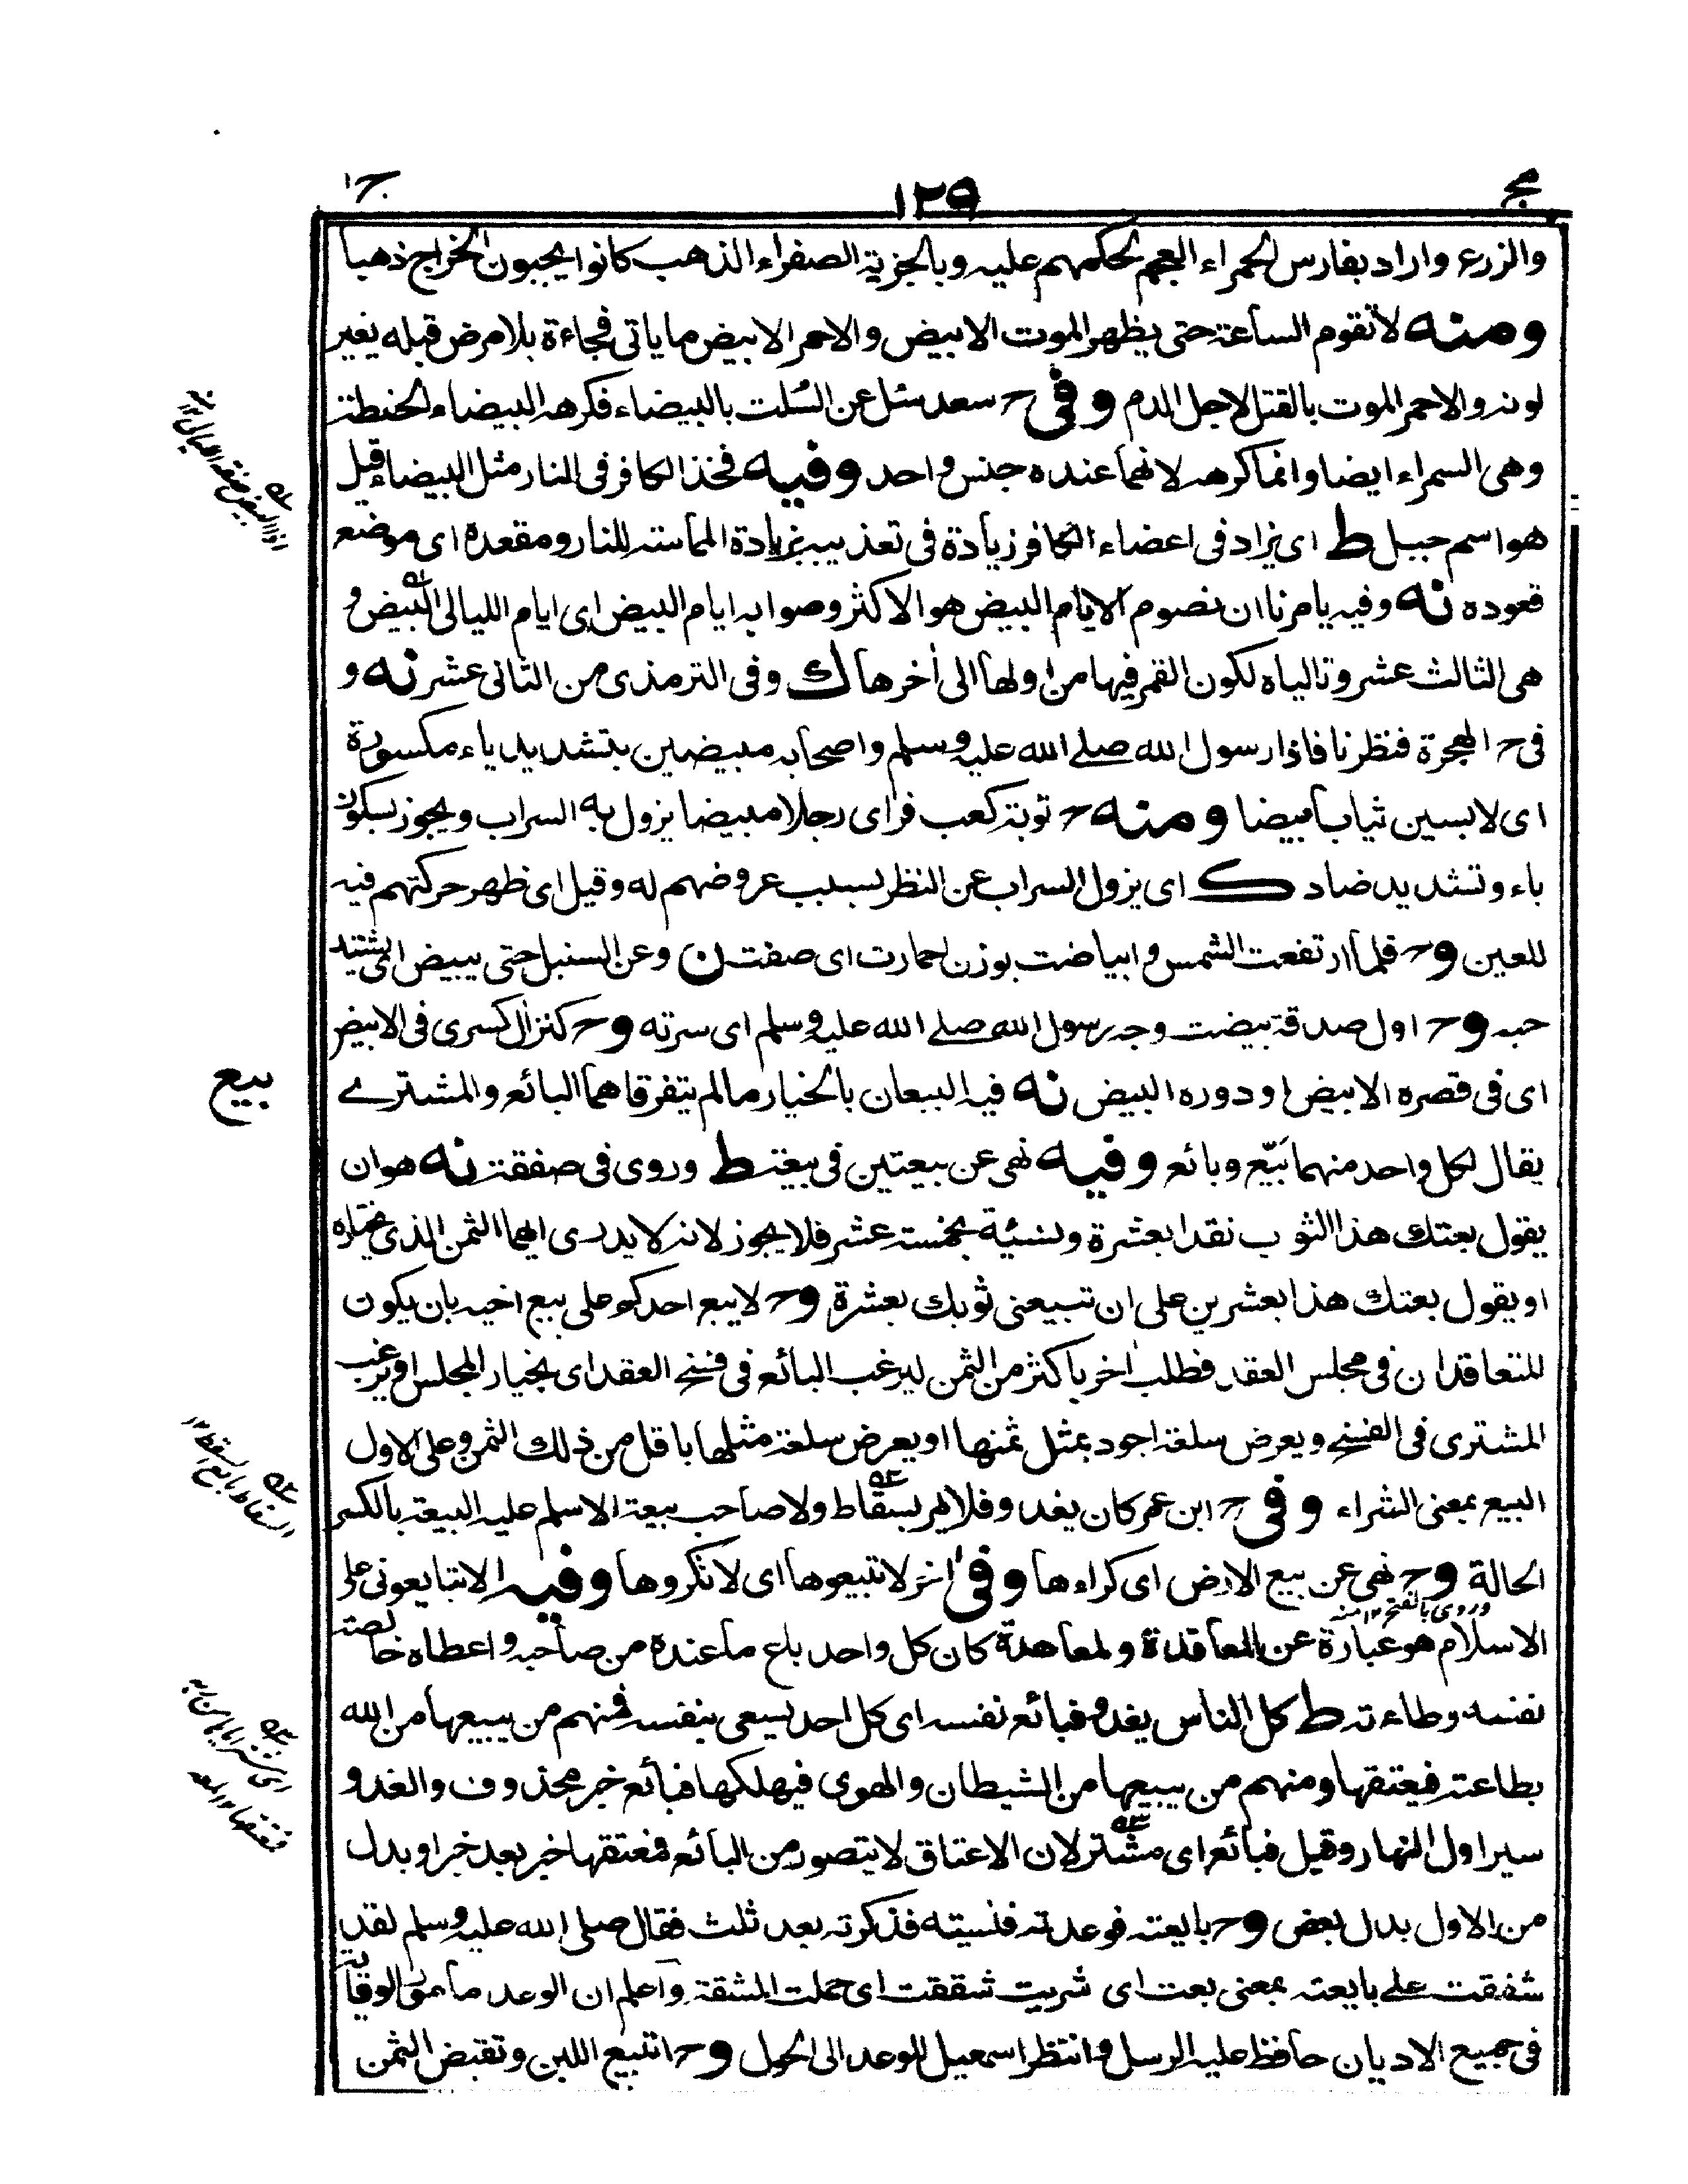 مج ١٢٩ ج١
والزرع واراد بفارس الحمراء العجم لحكمهم عليه وبالجزية الصفراء الذهب كانوا يجبون الخراج ذهبا
ومنه لا تقوم الساعة حتى يظهر الموت الابيض والاحمر الابيض ما ياتى فجاءة بلا مرض قبله يغير
لونه والاحمر الموت بالقتل لاجل الدم وفى ح سعد سئل عن السُلت بالبيضاء فكرهه البيضاء الحنطة
وهى السمراء ايضا وانما كرهه لانهما عنده جنس واحد وفيه فخذ الكافر فى النار مثل البيضاء قيل
هو اسم جبل ط اى يزاد فى اعضاء الكافر زيادة فى تعذيبه بزيادة المماسة للنار ومقعده اى موضع
قعوده نه وفيه يامرنا ان نصوم الايام البيض هو الاكثر وصوابه ايام البيض اى ايام الليالى البيض و
هى الثالث عشر وتالياه لكون القمر فيها من اولها الى اخرها ك وفى الترمذى من الثانى عشر نه و
فى ح الهجرة فنظرنا فاذا رسول الله صلے الله عليه وسلم واصحابه مبيضين بتشديد ياء مكسورة
اى لابسين ثيابا بيضا ومنه ح توبة كعب فراى رجلا مبيضا يزول به السراب ويجوز بسكون
باء وتشديد ضاد ك اى يزول السراب عن النظر بسبب عروضهم له وقيل اى ظهر حركتهم فيه
للعين وح فلما ارتفعت الشمس وابياضت بوزن احمارت اى صفت ن وعن السنبل حتى يبيض اى يشتد
حبه وح اول صدقة بيضت وجه رسول الله صلے الله عليه وسلم اى سرته وح كنز ال كسرى فى الابيض
اى فى قصره الابيض او دوره البيض نه فيه البيعان بالخيار ما لم يتفرقا هما البائع والمشترے
بيع
يقال لكل واحد منهما بَيّع وبائع وفيه نهى عن بيعتين فى بيعة ط وروى فى صفقة نه هو ان
يقول بعتك هذا الثوب نقدا بعشرة ونسئية بخمسة عشر فلا يجوز لانه لا يدرى ايهما الثمن الذى يختاره
او يقول بعتك هذا بعشرين على ان تبيعنى ثوبك بعشرة وح لا يبع احدكم على بيع اخيه بان يكون
للتعاقدان فى مجلس العقد فطلب اخر باكثر من الثمن ليرغب البائع فى فسخ العقد اى بخيار المجلس او يرغب
المشترى فى الفسخ ويعرض سلعة اجود بمثل ثمنها او يعرض سلعة مثلها باقل من ذلك الثمن وعلى الاول
البيع بمعنى الشراء وفى ح ابن عمر كان يغدو فلا يمر بسقاط ولا صاحب بيعة الا سلم عليه البيعة بالكسر
الحالة وح نهى عن بيع الارض اى كراءها وفى اخر لا تبيعوها اى لا تكروها وفيه الا تبايعونى على
وروى بالفتح ١٢ منه
الاسلام هو عبارة عن المعاقدة ولمعاهدة كان كل واحد باع ما عنده من صاحبه واعطاه خالصة
نفسه وطاعته ط كل الناس يغدو فبائع نفسه اى كل احد يسعى بنفسه فمنهم من يبيعها من الله
بطاعته فيعتقها ومنهم من يبيعها من الشيطان والهوى فيهلكها فبائع خبر محذوف والغدو
سير اول النهار وقيل فبائع اى مشتر لان الاعتاق لا يتصور من البائع فمعتقها خبر بعد خبر او بدل
من الاول بدل بعض وح بايعته فوعدته فنسيته فذكرته بعد ثلث فقال صلى الله عليه وسلم لقد
شققت على بايعته بمعنى بعت اى شريت شققت اى حملت المشقة واعلم ان الوعد مامور الوفاء به
فى جميع الاديان حافظ عليه الرسل وانتظر اسمعيل للوعد الى الحول وح اتبيع اللبن وتقبض الثمن